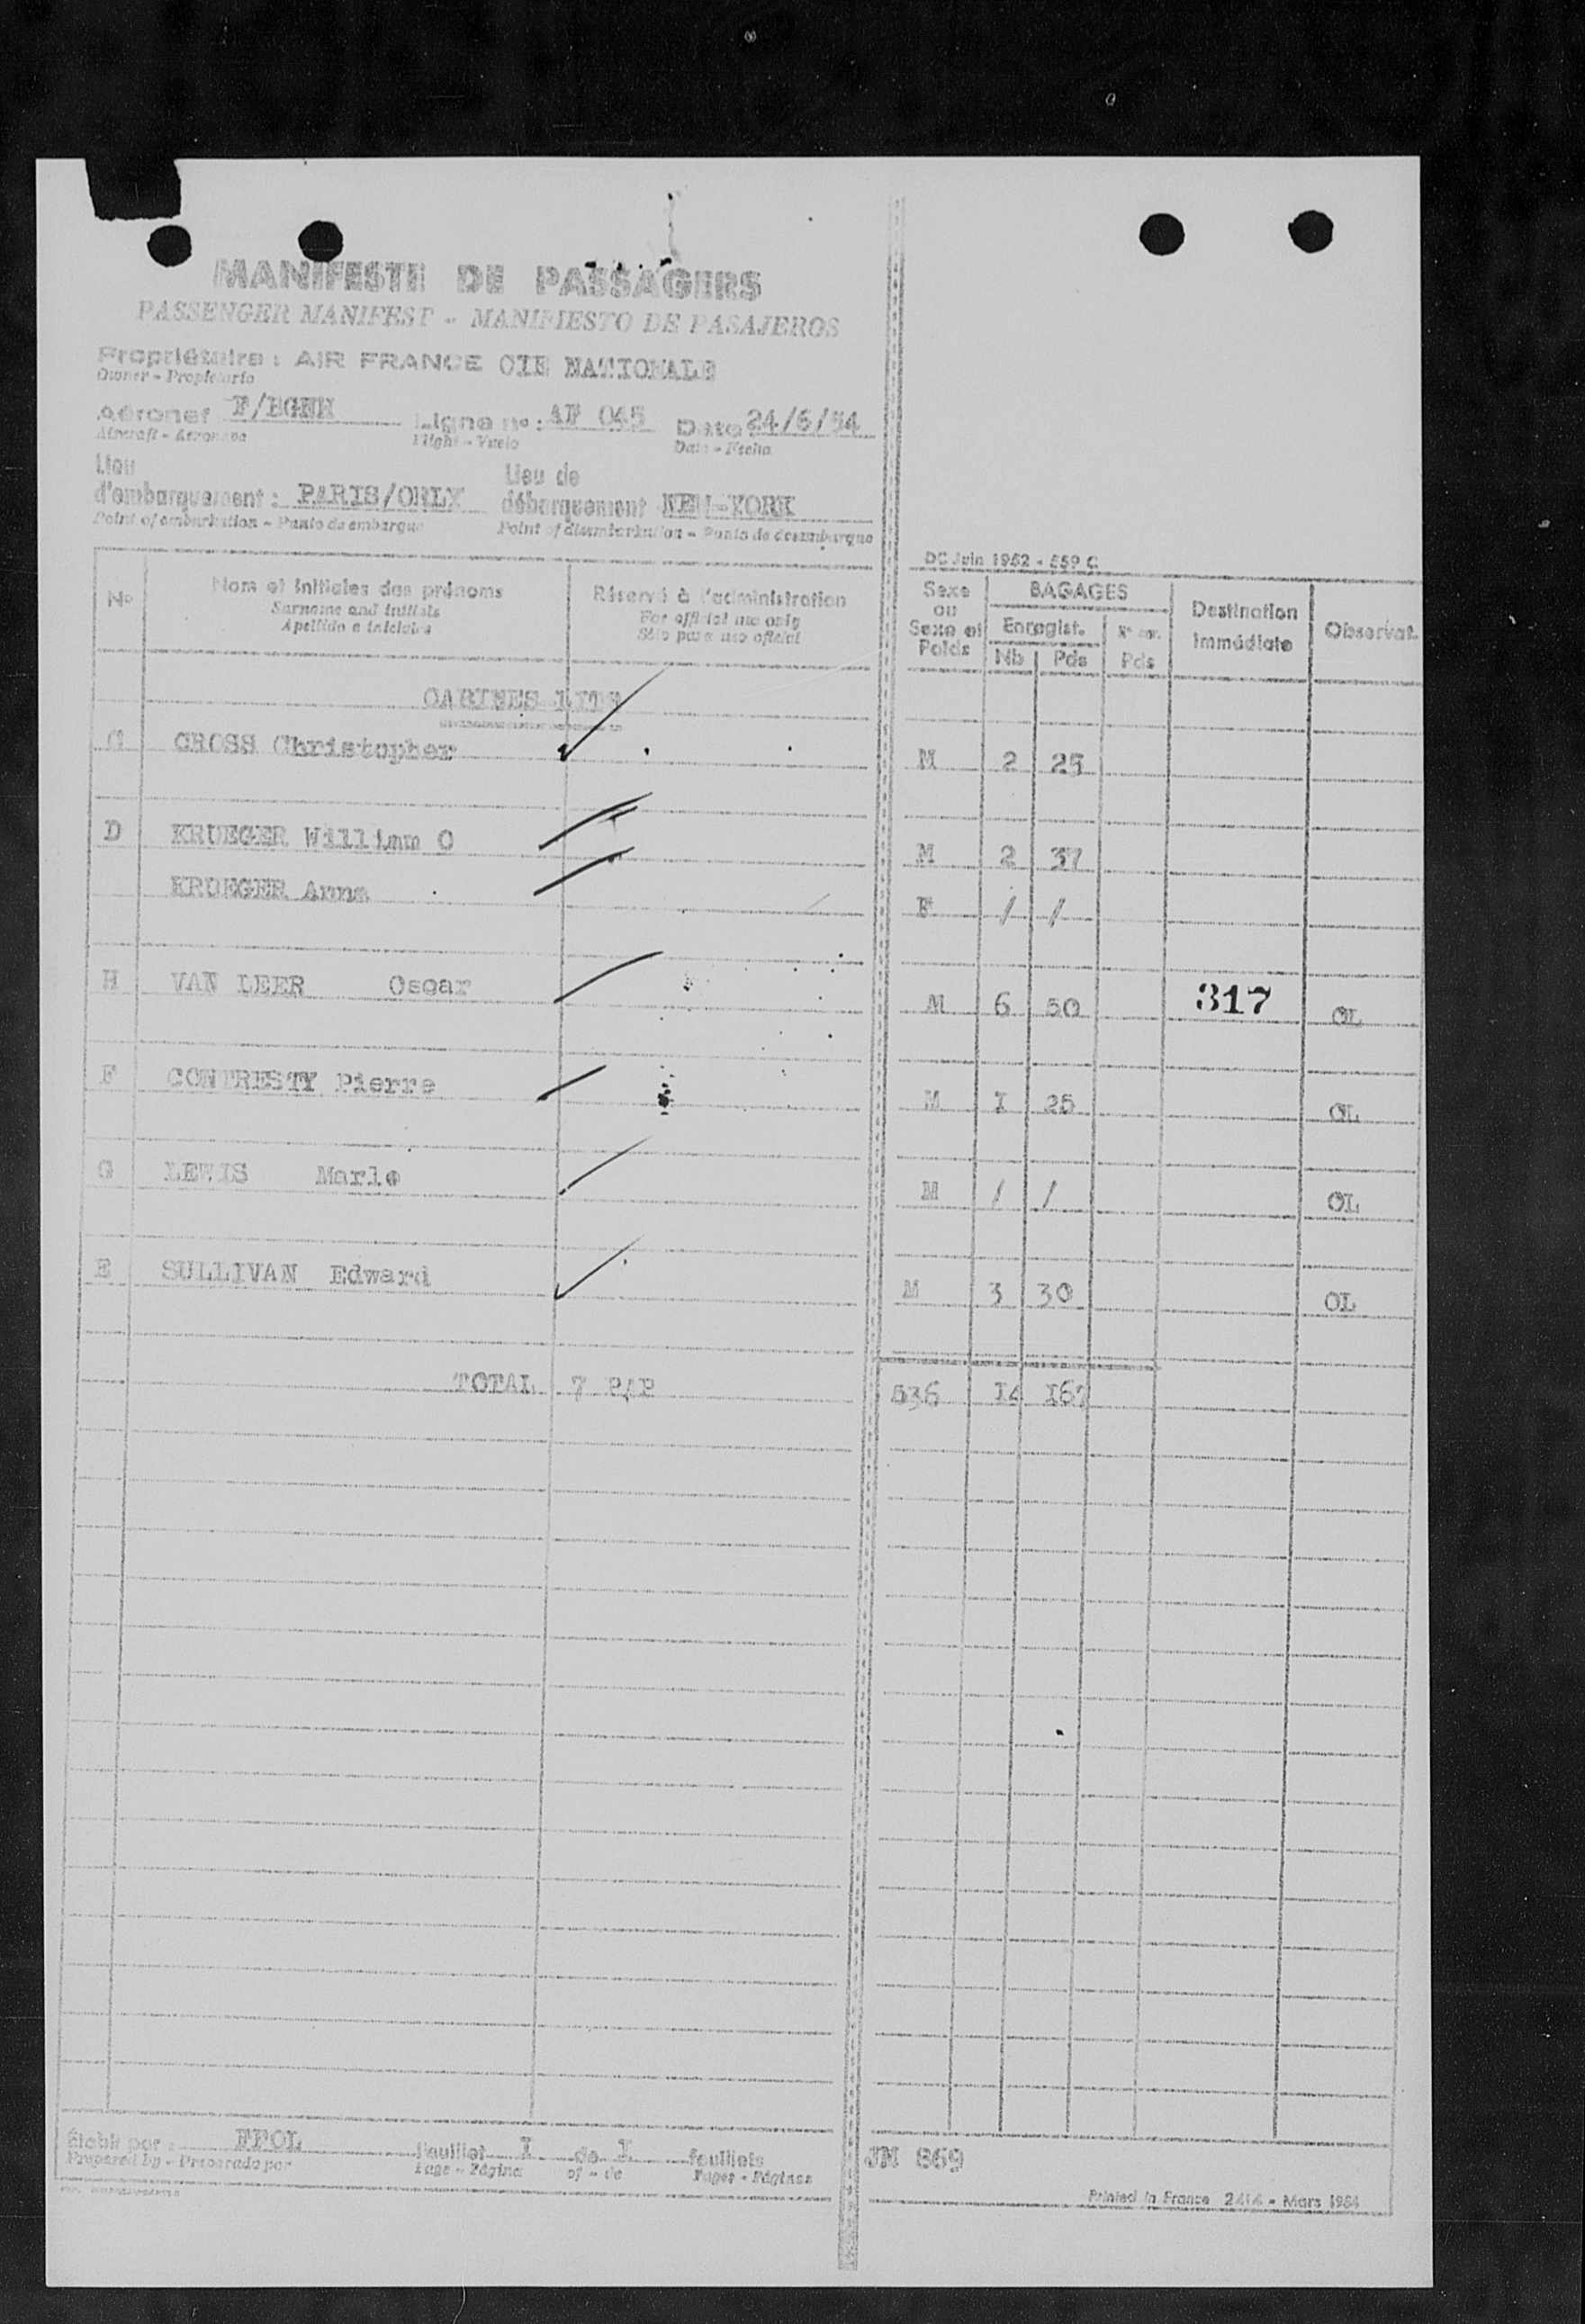 MANIFESTE DE PASSAGERS
PASSENGER MANIFEST - MANIFIESTO DE PASAJEROS
Propriétaire : AIR FRANCE CIE NATIONALE
Owner - Propietario
Aéronef F/BGNH Ligne nº : AF 045 Date 24/6/54
Aircraft - Aeronave Flight - Vuelo Date - Fecha
Lieu d'embarquement : PARIS/ORLY Lieu de débarquement NEW-YORK
Point of embarkation - Punto de embarque Point of disembarkation - Punto de desembarque
DC Juin 1952 - 559 C
Nº Nom et initiales des prénoms Réservé à l'administration Sexe ou Sexe et Poids BAGAGES Destination immédiate Observat.
Surname and initials For official use only Enregist.
Apellido e iniciales Sólo para uso oficial Nb Pds Pds
GROSS Christopher M 2 25
D KRUEGER William O M 2 37
KRUEGER Anna F / /
H VAN LEER Oscar M 6 50 317 OL
F CONTRESTY Pierre M I 25 OL
G LEWIS Marlo M / / OL
E SULLIVAN Edward M 3 30 OL
TOTAL 7 PAP 536 I4 I67
Établi par : FPOL Feuillet I de I feuillets JM 869
Prepared by - Preparado por Page - Página of - de Pages - Páginas
Printed in France 2414 - Mars 1954